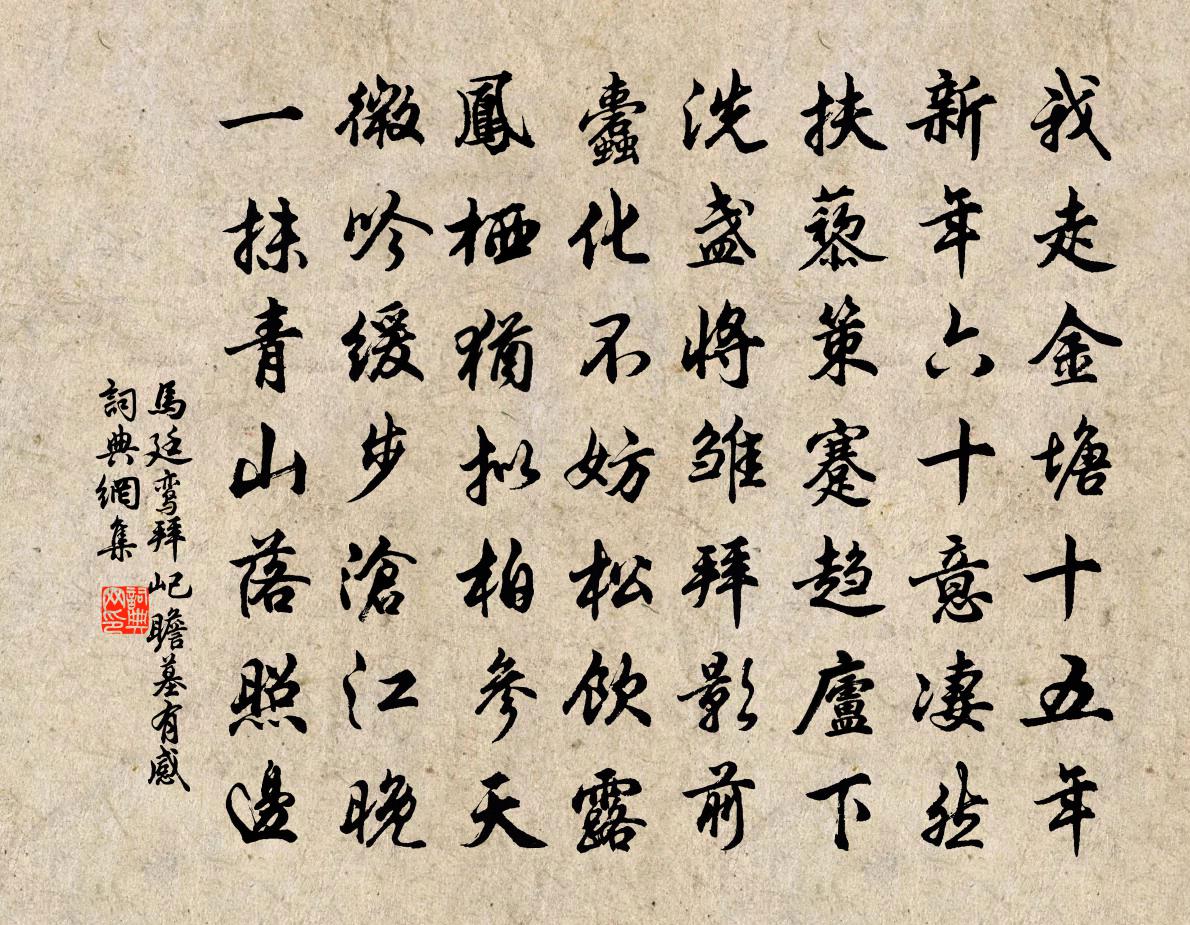 我走金塘十五年
新年六十意凄然
扶藜策蹇趋廬下
洗盏將雏拜影前
蠹化不妨松飲露
鳳栖猶拟柏參天
微吟缓步滄江晚
一抹青山落照邊
馬廷鸾拜屺瞻墓有感
詞典網集
詞典网印